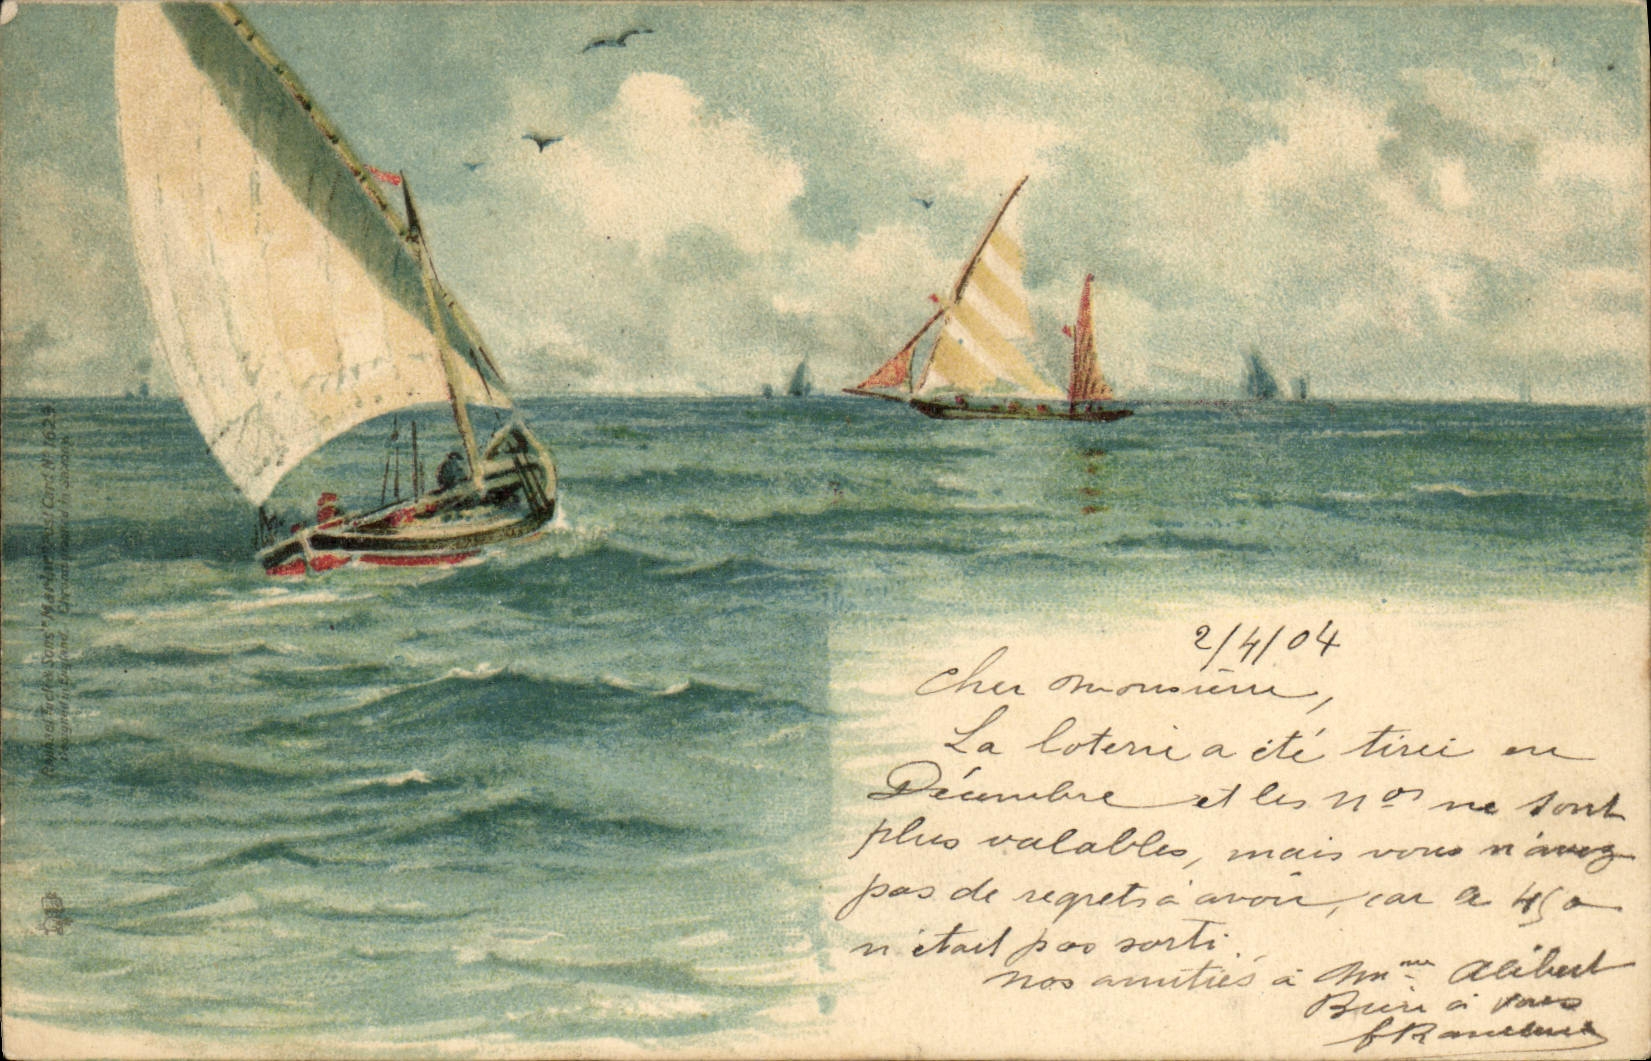 2/4/04
Cher monsieur,
La loterie a été tirée en
Décembre et les nos ne sont
plus valables, mais vous n'avez
pas de regrets à avoir, car le 450
n'était pas sorti.
nos amitiés à Mme Alibert
Bien à vous
Raphael Tuck & Sons' "Marine" Post Card No 1629
Designed in England. Chromographed in Saxony.